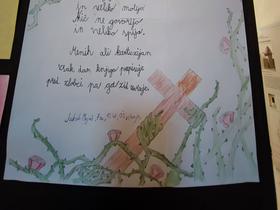 in veliko molijo
Nič ne govorijo
in veliko spijo.
Menih ali kartuzijan
vsak dan knjigo prepisuje
pred zlobci pa ga zid varuje.